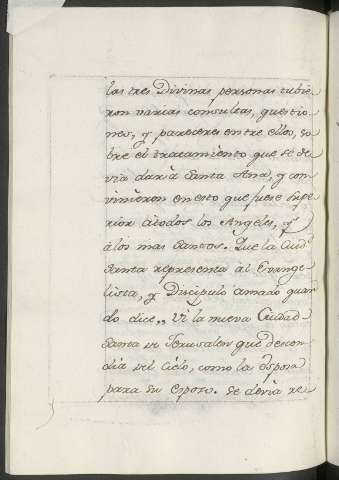 las tres Divinas personas tubie
ron varias consultas, questio
nes, y pareceres entre ellos, so
bre el tratamiento que se de
via dar à Santa Ana, y con
vinieron en esto que fuese supe
rior àtodos los Angeles, y
à los mas Santos. Que la Ciud.
Santa representa al Evange
lista, y Discipulo amado quan
do dice,, Vi la nueva Ciudad
Santa de Jerusalen que descen
dia del Cielo, como la esposa
para su esposo. Se devia re